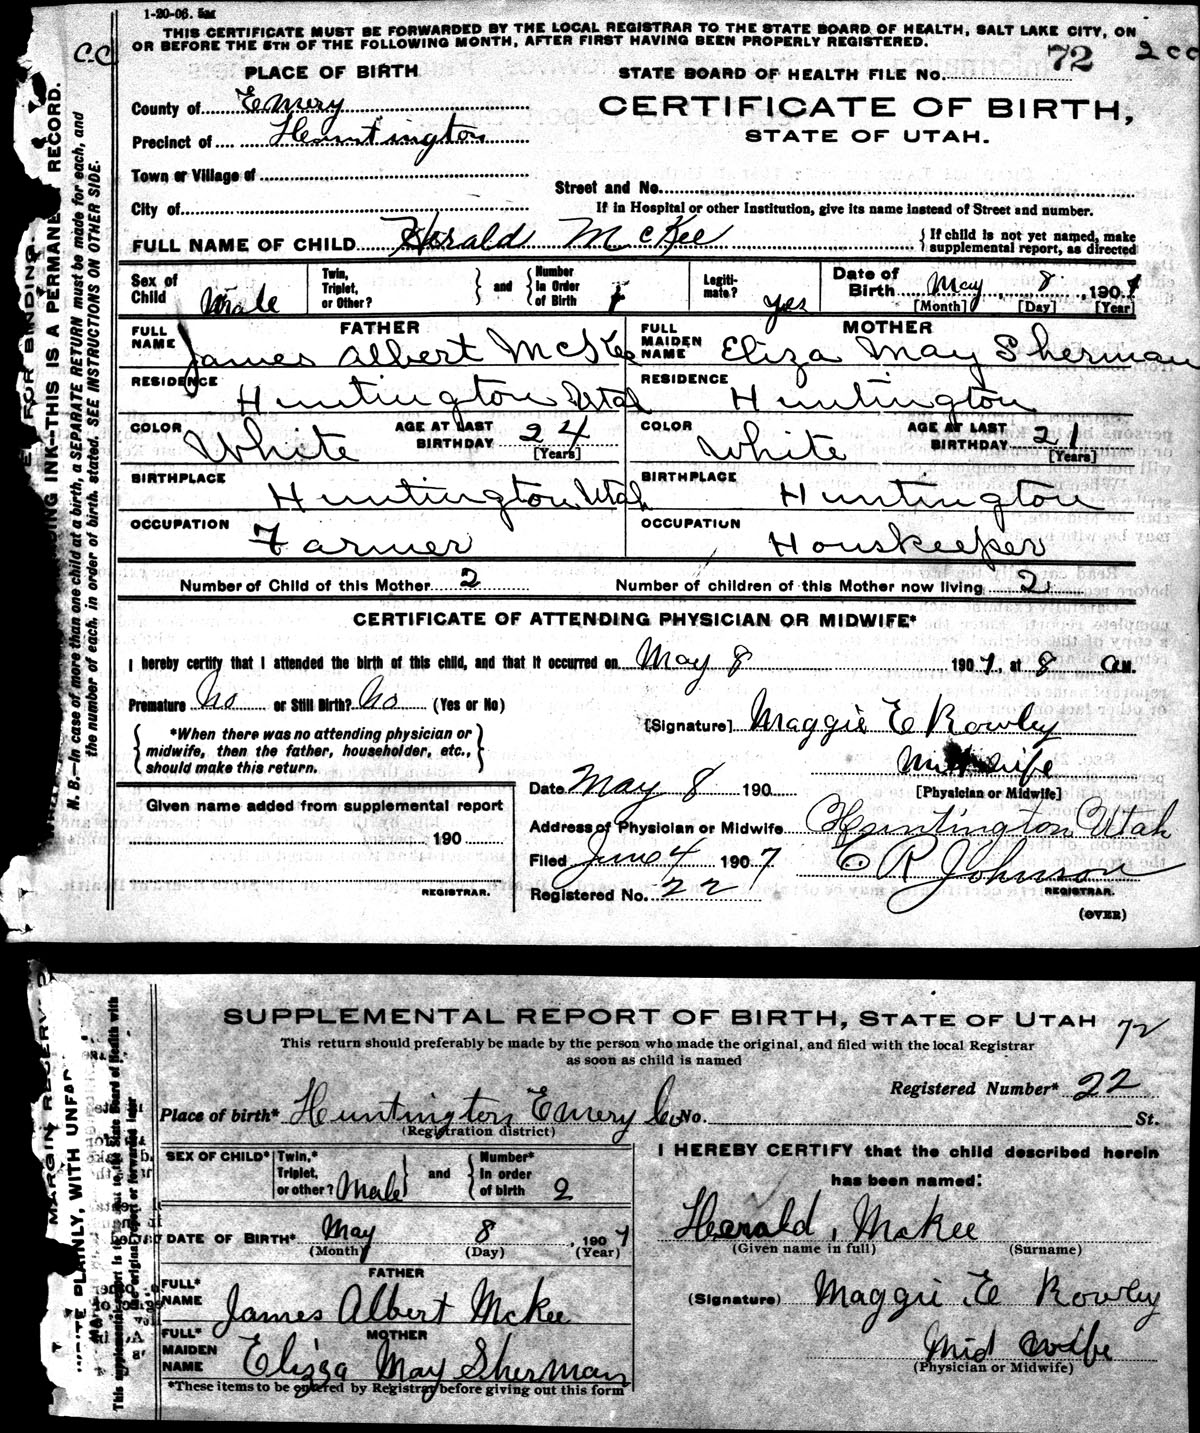 1-20-06. 5M
THIS CERTIFICATE MUST BE FORWARDED BY THE LOCAL REGISTRAR TO THE STATE BOARD OF HEALTH, SALT LAKE CITY, ON
OR BEFORE THE 5TH OF THE FOLLOWING MONTH, AFTER FIRST HAVING BEEN PROPERLY REGISTERED.
C.C. 2 CC
PLACE OF BIRTH
STATE BOARD OF HEALTH FILE No. 72
County of Emery
CERTIFICATE OF BIRTH,
Precinct of Huntington
STATE OF UTAH.
Town or Village of
Street and No.
City of
If in Hospital or other Institution, give its name instead of Street and number.
FULL NAME OF CHILD Herald McKee
{ If child is not yet named, make supplemental report, as directed
Sex of Child Male Twin, Triplet, or Other? } and { Number in Order of Birth Legiti- mate? yes Date of Birth May 8, 1907
[Month] [Day] [Year]
FATHER MOTHER
FULL NAME James Albert McKee FULL MAIDEN NAME Eliza May Sherman
RESIDENCE Huntington Utah RESIDENCE Huntington
COLOR White AGE AT LAST BIRTHDAY 24 [Years] COLOR White AGE AT LAST BIRTHDAY 21 [Years]
BIRTHPLACE Huntington Utah BIRTHPLACE Huntington
OCCUPATION Farmer OCCUPATION Houskeeper
Number of Child of this Mother 2 Number of children of this Mother now living 2
CERTIFICATE OF ATTENDING PHYSICIAN OR MIDWIFE*
I hereby certify that I attended the birth of this child, and that it occurred on May 8 1907, at 8 A.M.
Premature No or Still Birth? No (Yes or No)
[Signature] Maggie E Rowley
{ *When there was no attending physician or
midwife, then the father, householder, etc.,
should make this return. }
Midwife
[Physician or Midwife]
Date May 8 190
Given name added from supplemental report
Address of Physician or Midwife Huntington Utah
190
Filed June 4 1907 E R Johnson
REGISTRAR. Registered No. 22 REGISTRAR.
(OVER)
N. B.—In case of more than one child at a birth, a SEPARATE RETURN must be made for each, and
the number of each, in order of birth, stated. SEE INSTRUCTIONS ON OTHER SIDE.
FOR BINDING.
INK—THIS IS A PERMANENT RECORD.
SUPPLEMENTAL REPORT OF BIRTH, STATE OF UTAH 72
This return should preferably be made by the person who made the original, and filed with the local Registrar
as soon as child is named
Registered Number* 22
Place of birth* Huntington Emery Co No. St.
(Registration district)
I HEREBY CERTIFY that the child described herein
has been named:
SEX OF CHILD* Twin,* Triplet, or other? Male } and { Number* in order of birth 2
Herald, McKee
(Given name in full) (Surname)
DATE OF BIRTH* May 8, 1907
(Month) (Day) (Year)
FATHER
FULL* NAME James Albert McKee
(Signature) Maggie E Rowley
MOTHER
FULL* MAIDEN NAME Elizza May Sherman
Mid wife
(Physician or Midwife)
*These items to be entered by Registrar before giving out this form
MARGIN RESERV
WRITE PLAINLY, WITH UNFA